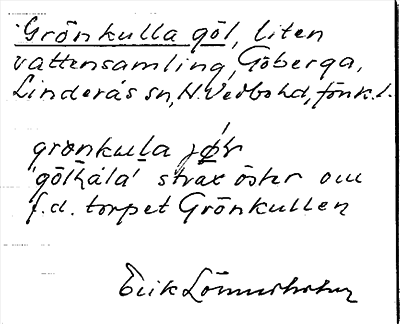 Grönkulla göl, liten
vattensamling, Göberga,
Linderås sn, N. Vedbo hd, Jönk. l.
grönkula jø̄r
'gölhåla' strax öster om
f.d. torpet Grönkullen
Erik